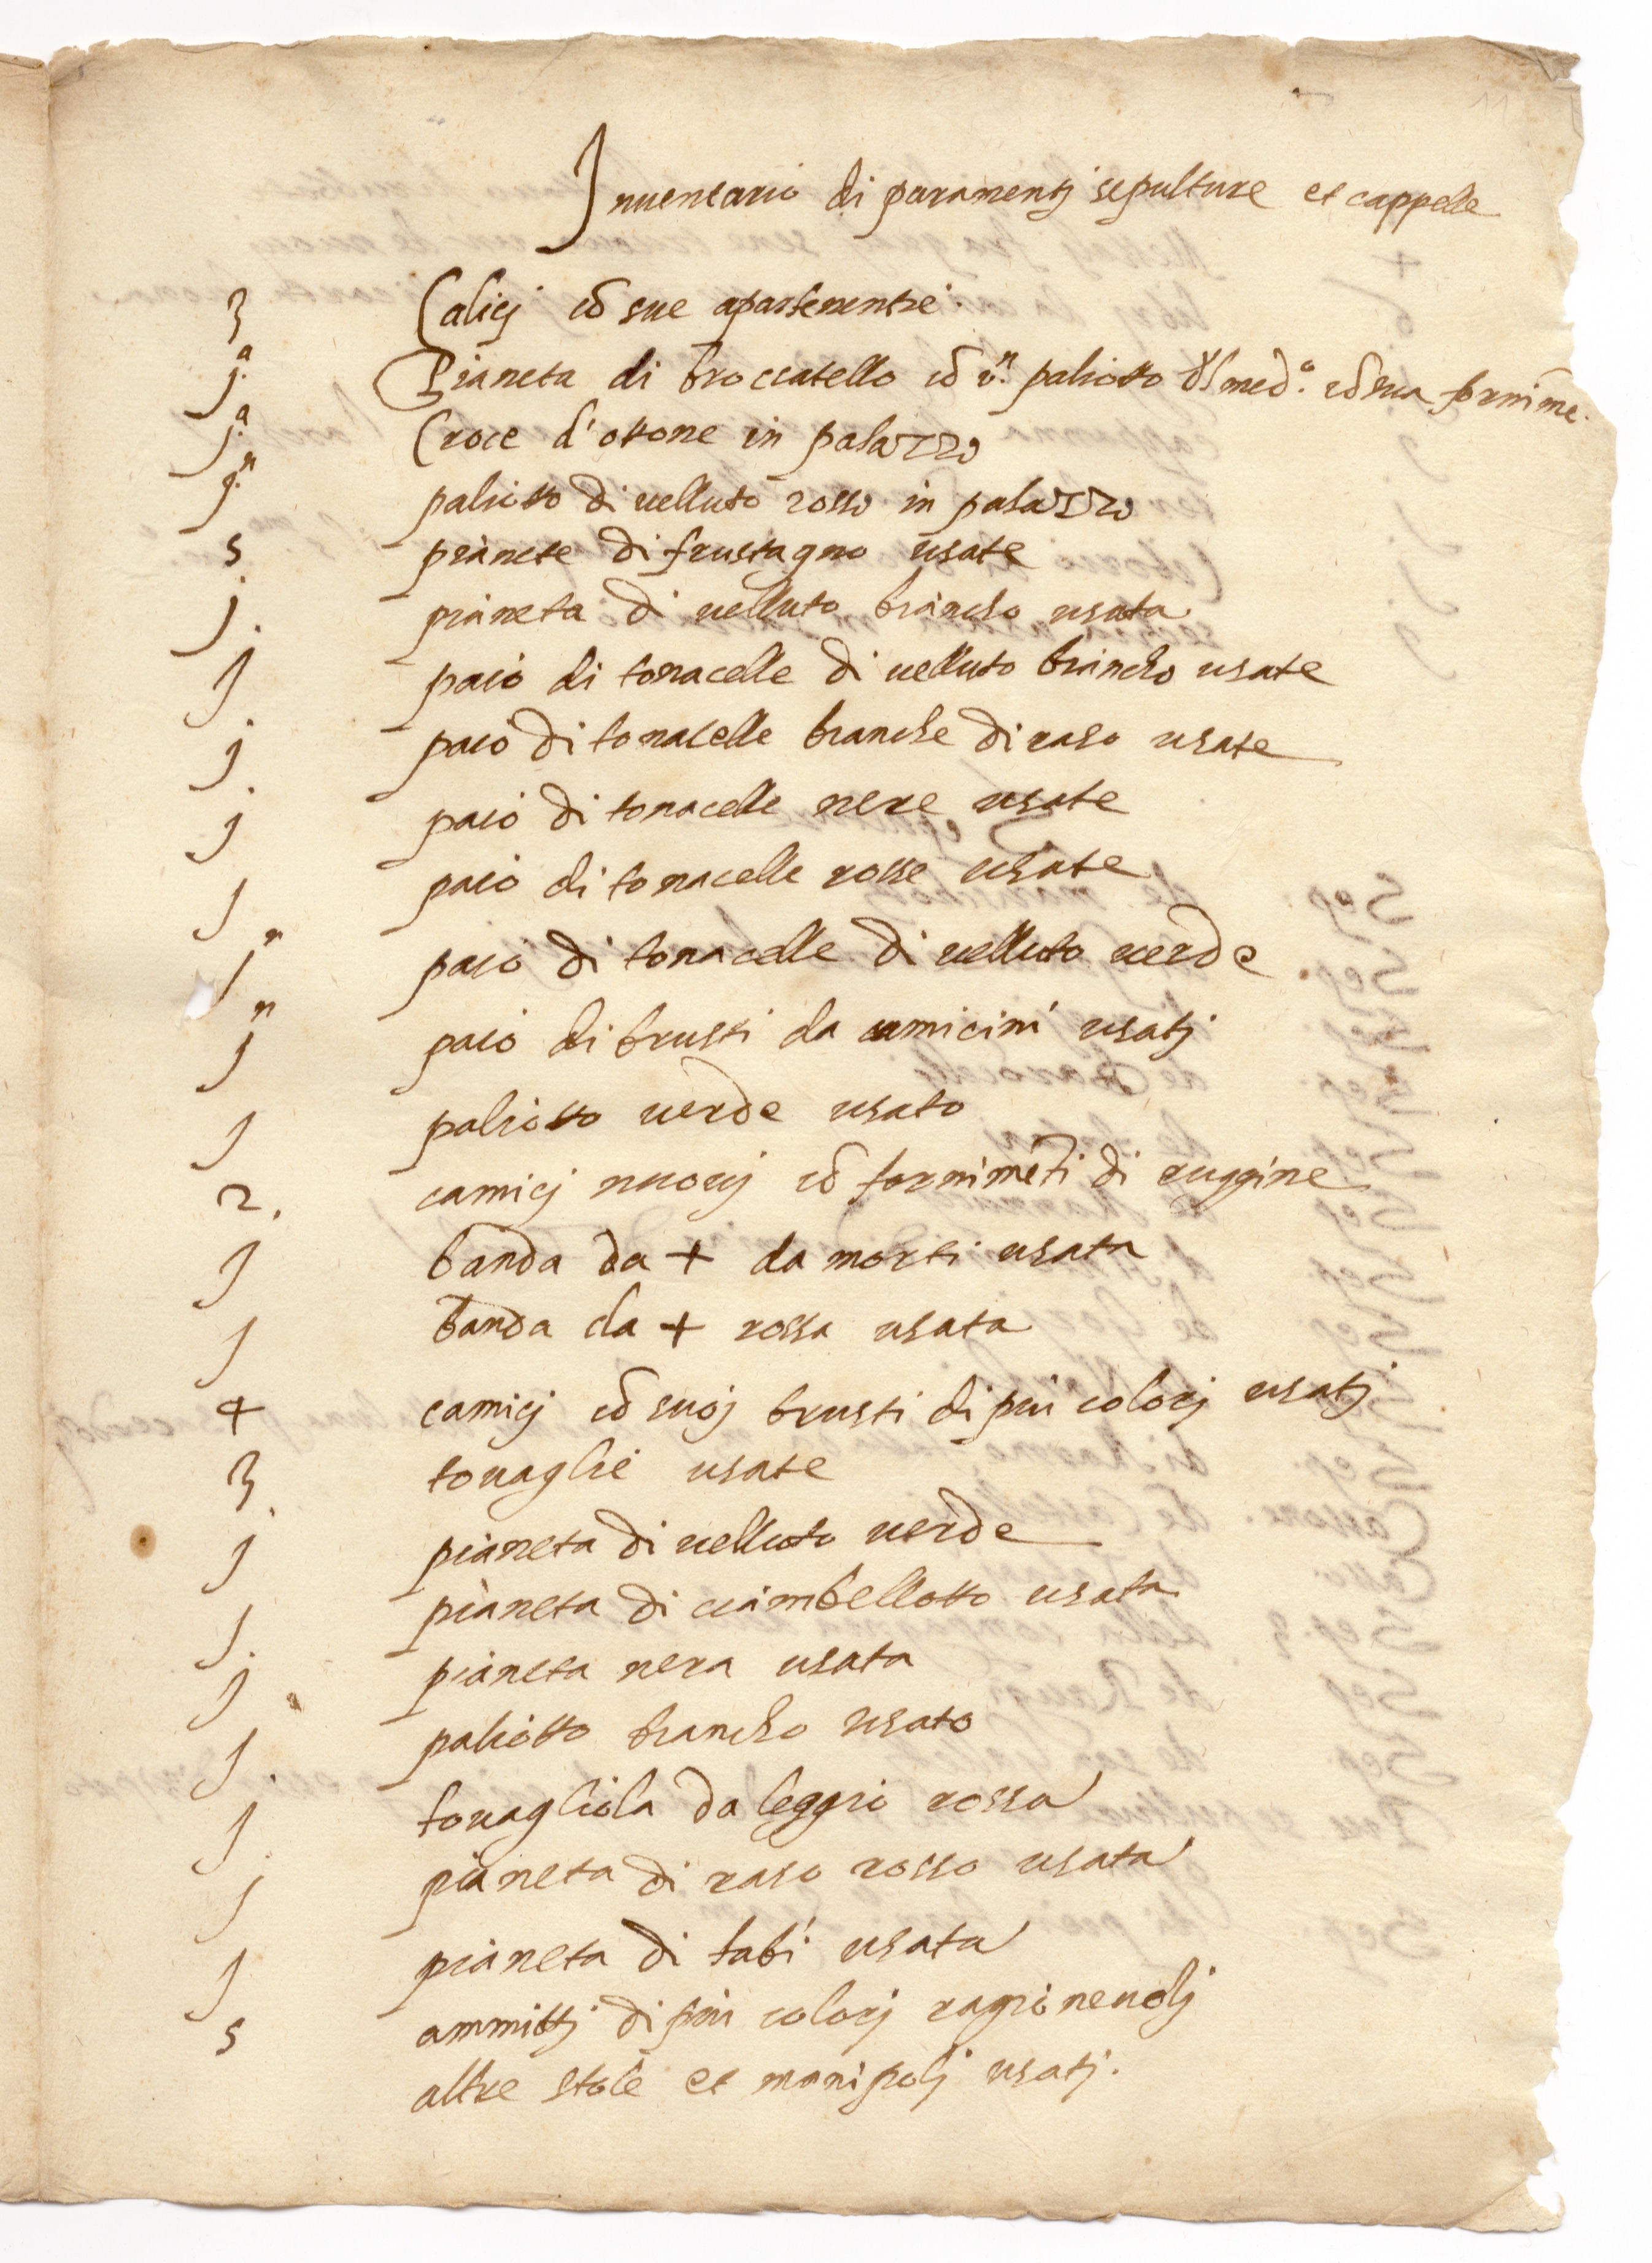 Inuentario di paramentj sepulture et cappelle
3 Calicj cō sue apartenentie.
j.a Pianeta di broccatello cō v.n paliotto del med.o cō sua fornime.
j.a Croce d'ottone in palazzo
j.n paliotto di uelluto rosso in palazzo
5 pianete di frustagno usate
j. pianeta di uelluto biancho usata
j. paio di tonacelle di uelluto biancho usate
j. paio di tonacelle bianche di raso usate
j paio di tonacelle nere usate
j paio di tonacelle rosse usate
j.n paio di tonacelle di uelluto uerde
j.n paio di brusti da camicini usatj
j paliotto uerde usato
2. camicj nuouj cō fornimēti di ruggine
j banda da + da morti usata
j banda da + rossa usata
4 camicj cō suoj brusti di piu colorj usatj
3. touaglie usate
j pianeta di uelluto uerde
j. pianeta di ciambellotto usata
j pianeta nera usata
j. paliotto biancho usato
j. touagliola da leggio rossa
j pianeta di raso rosso usata
j pianeta di tabi usata
5 ammittj di piu colorj ragioneuolj
altre stole et manipolj usatj.